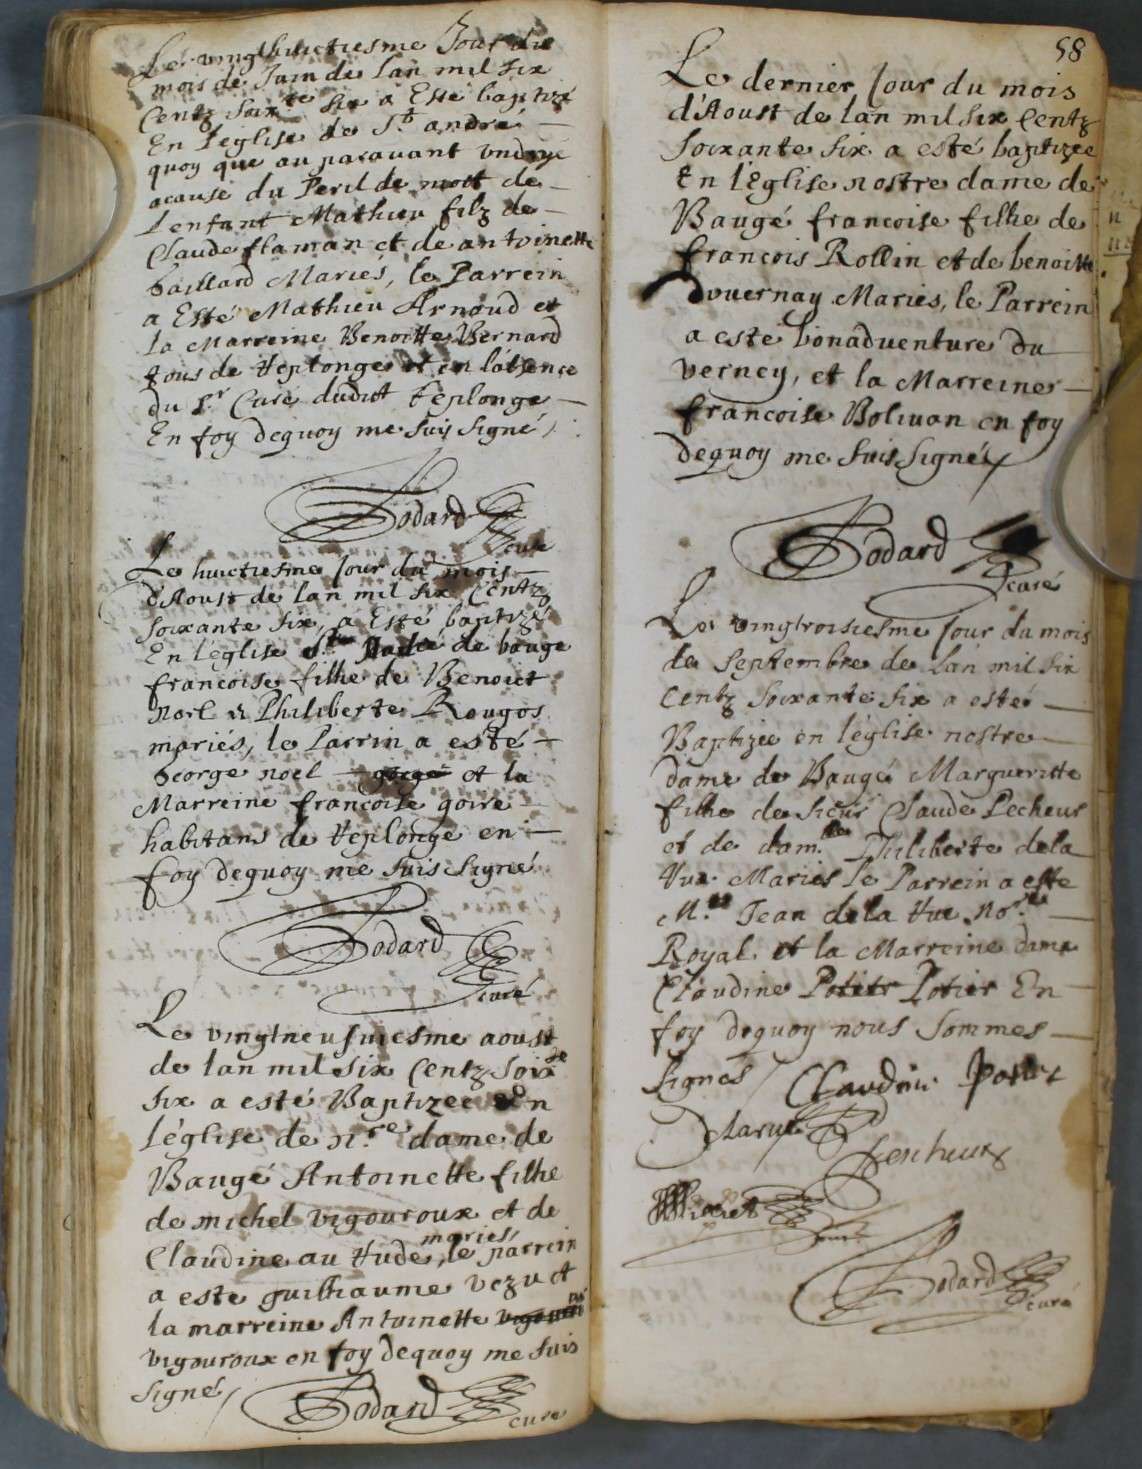 Le vingthuictiesme Jour du
mois de Juin de lan mil six
Centz soix.te six a Esté baptizé
En l'eglise de S.t andré
quoy que au parauant
acause du Peril de mort de
l'enfant Mathieu filz de
Claude flaman et de antoinette
Gaillard Mariés, le Parrein
a Esté Mathieu Arnoud et
la Marreine Benoitte Bernard
tous de Replonge et en labsence
du s.r Curé dudict Replonge
En foy dequoy me suis signé,
Bodard
curé
Le huictiesme Jour du mois
d'Aoust de lan mil six Centz
soixante six, a Esté baptizé
En l'eglise de bauge
francoise filhe de Benoict
Noel & Philiberte Rougos
mariés, le Parrin a esté
George noel et la
Marreine francoise goire
habitans de Replonge en
foy dequoy me suis signé
Bodard
curé
Le vingtneufuiesme aoust
de lan mil six Centz soix.te
six a esté Baptizee En
l'église de n.re dame de
Baugé Antoinette filhe
de michel vigouroux et de
mariés,
Claudine au Hude, le parrein
a este guilhaume vezu et
la marreine Antoinette
vigouroux en foy dequoy me suis
signé
Bodard
curé
58
Le dernier Jour du mois
d'Aoust de lan mil six Centz
soixante six a esté baptizee
En l'Eglise nostre dame de
Baugé francoise filhe de
francois Rollin et de benoitte
duuernay Mariés, le Parrein
a este bonaduenture du
verney, et la Marreine
francoise Boliuan en foy
dequoy me suis signé
Bodard
curé
Le vingtroisiesme Jour du mois
de Septembre de Lan mil six
Centz soixante six a esté
Baptizée en l'église nostre
dame de Baugé Margueritte
filhe de sieur Claude Pecheur
et de dam.lle Philiberte de la
Rua Mariés Le Parrein a este
M.re Jean de la Rue No.re
Royal et la Marreine dame
Claudine Potier En
foy dequoy nous sommes
signés Claudine Potiet
Larue
Pescheur
Bodard
curé